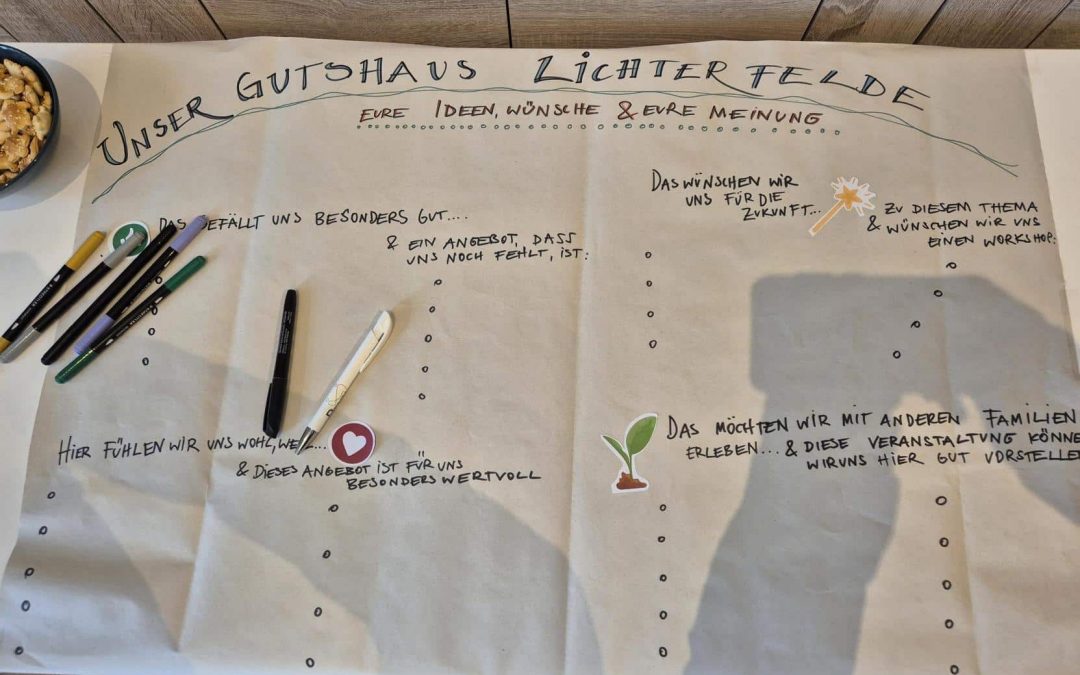 UNSER GUTSHAUS LICHTERFELDE
EURE IDEEN, WÜNSCHE & EURE MEINUNG
DAS GEFÄLLT UNS BESONDERS GUT....
& EIN ANGEBOT, DASS
UNS NOCH FEHLT, IST:
DAS WÜNSCHEN WIR
UNS FÜR DIE
ZUKUNFT...
ZU DIESEM THEMA
& WÜNSCHEN WIR UNS
EINEN WORKSHOP:
HIER FÜHLEN WIR UNS WOHL, WEIL...
& DIESES ANGEBOT IST FÜR UNS
BESONDERS WERTVOLL
DAS MÖCHTEN WIR MIT ANDEREN FAMILIEN
ERLEBEN... & DIESE VERANSTALTUNG KÖNNE
WIR UNS HIER GUT VORSTELLE